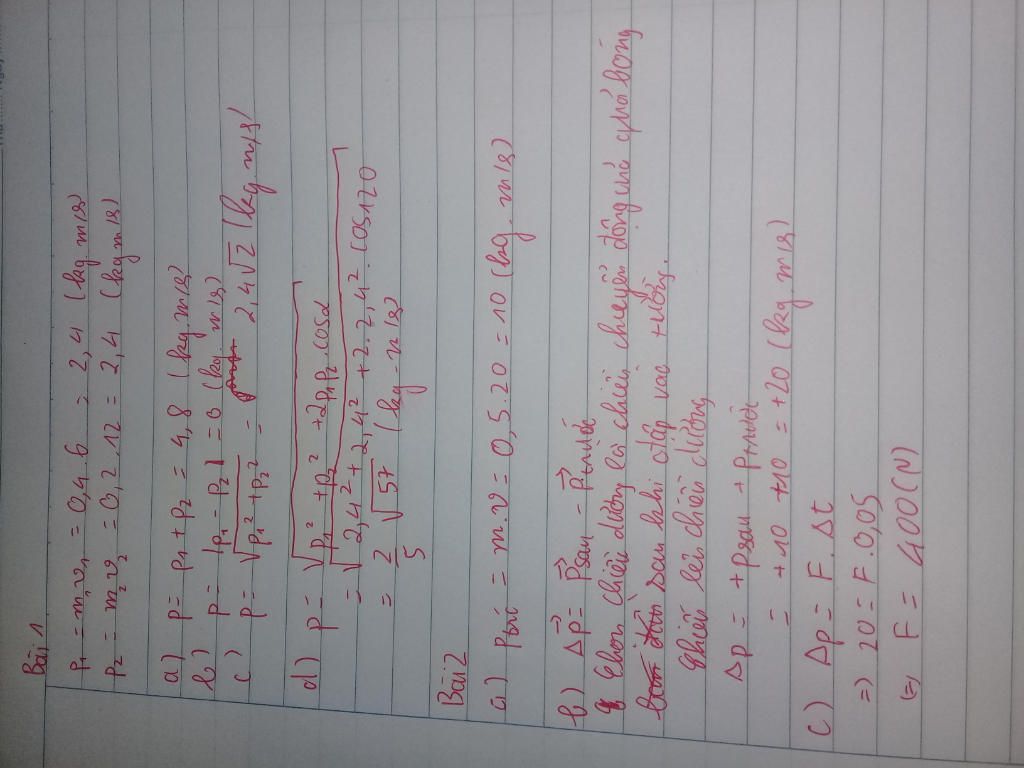 Bài 1
P1 = m1v1 = 0,4.6 = 2,4 (kg m/s)
P2 = m2v2 = 0,2.12 = 2,4 (kg m/s)
a) P = P1 + P2 = 4,8 (kg.m/s)
b) P = |P1 - P2| = 0 (kg. m/s)
c) P = √(P1² + P2²) = 2,4√2 (kg.m/s)
d) P = √(P1² + P2² + 2P1P2.cosα)
= √(2,4² + 2,4² + 2.2,4².cos120
= 2√57/5 (kg-m/s)
Bài 2
a) P = m.v = 0,5.20 = 10 (kg.m/s)
b) Δp⃗ = p⃗sau - p⃗trước
Chọn chiều dương là chiều chuyển động quả bóng
sau khi đập vào tường.
Chiếu lên chiều dương
Δp = + psau + ptrước
= +10 +10 = +20 (kg.m/s)
c) Δp = F.Δt
=> 20 = F.0,05
(=) F = 400(N)